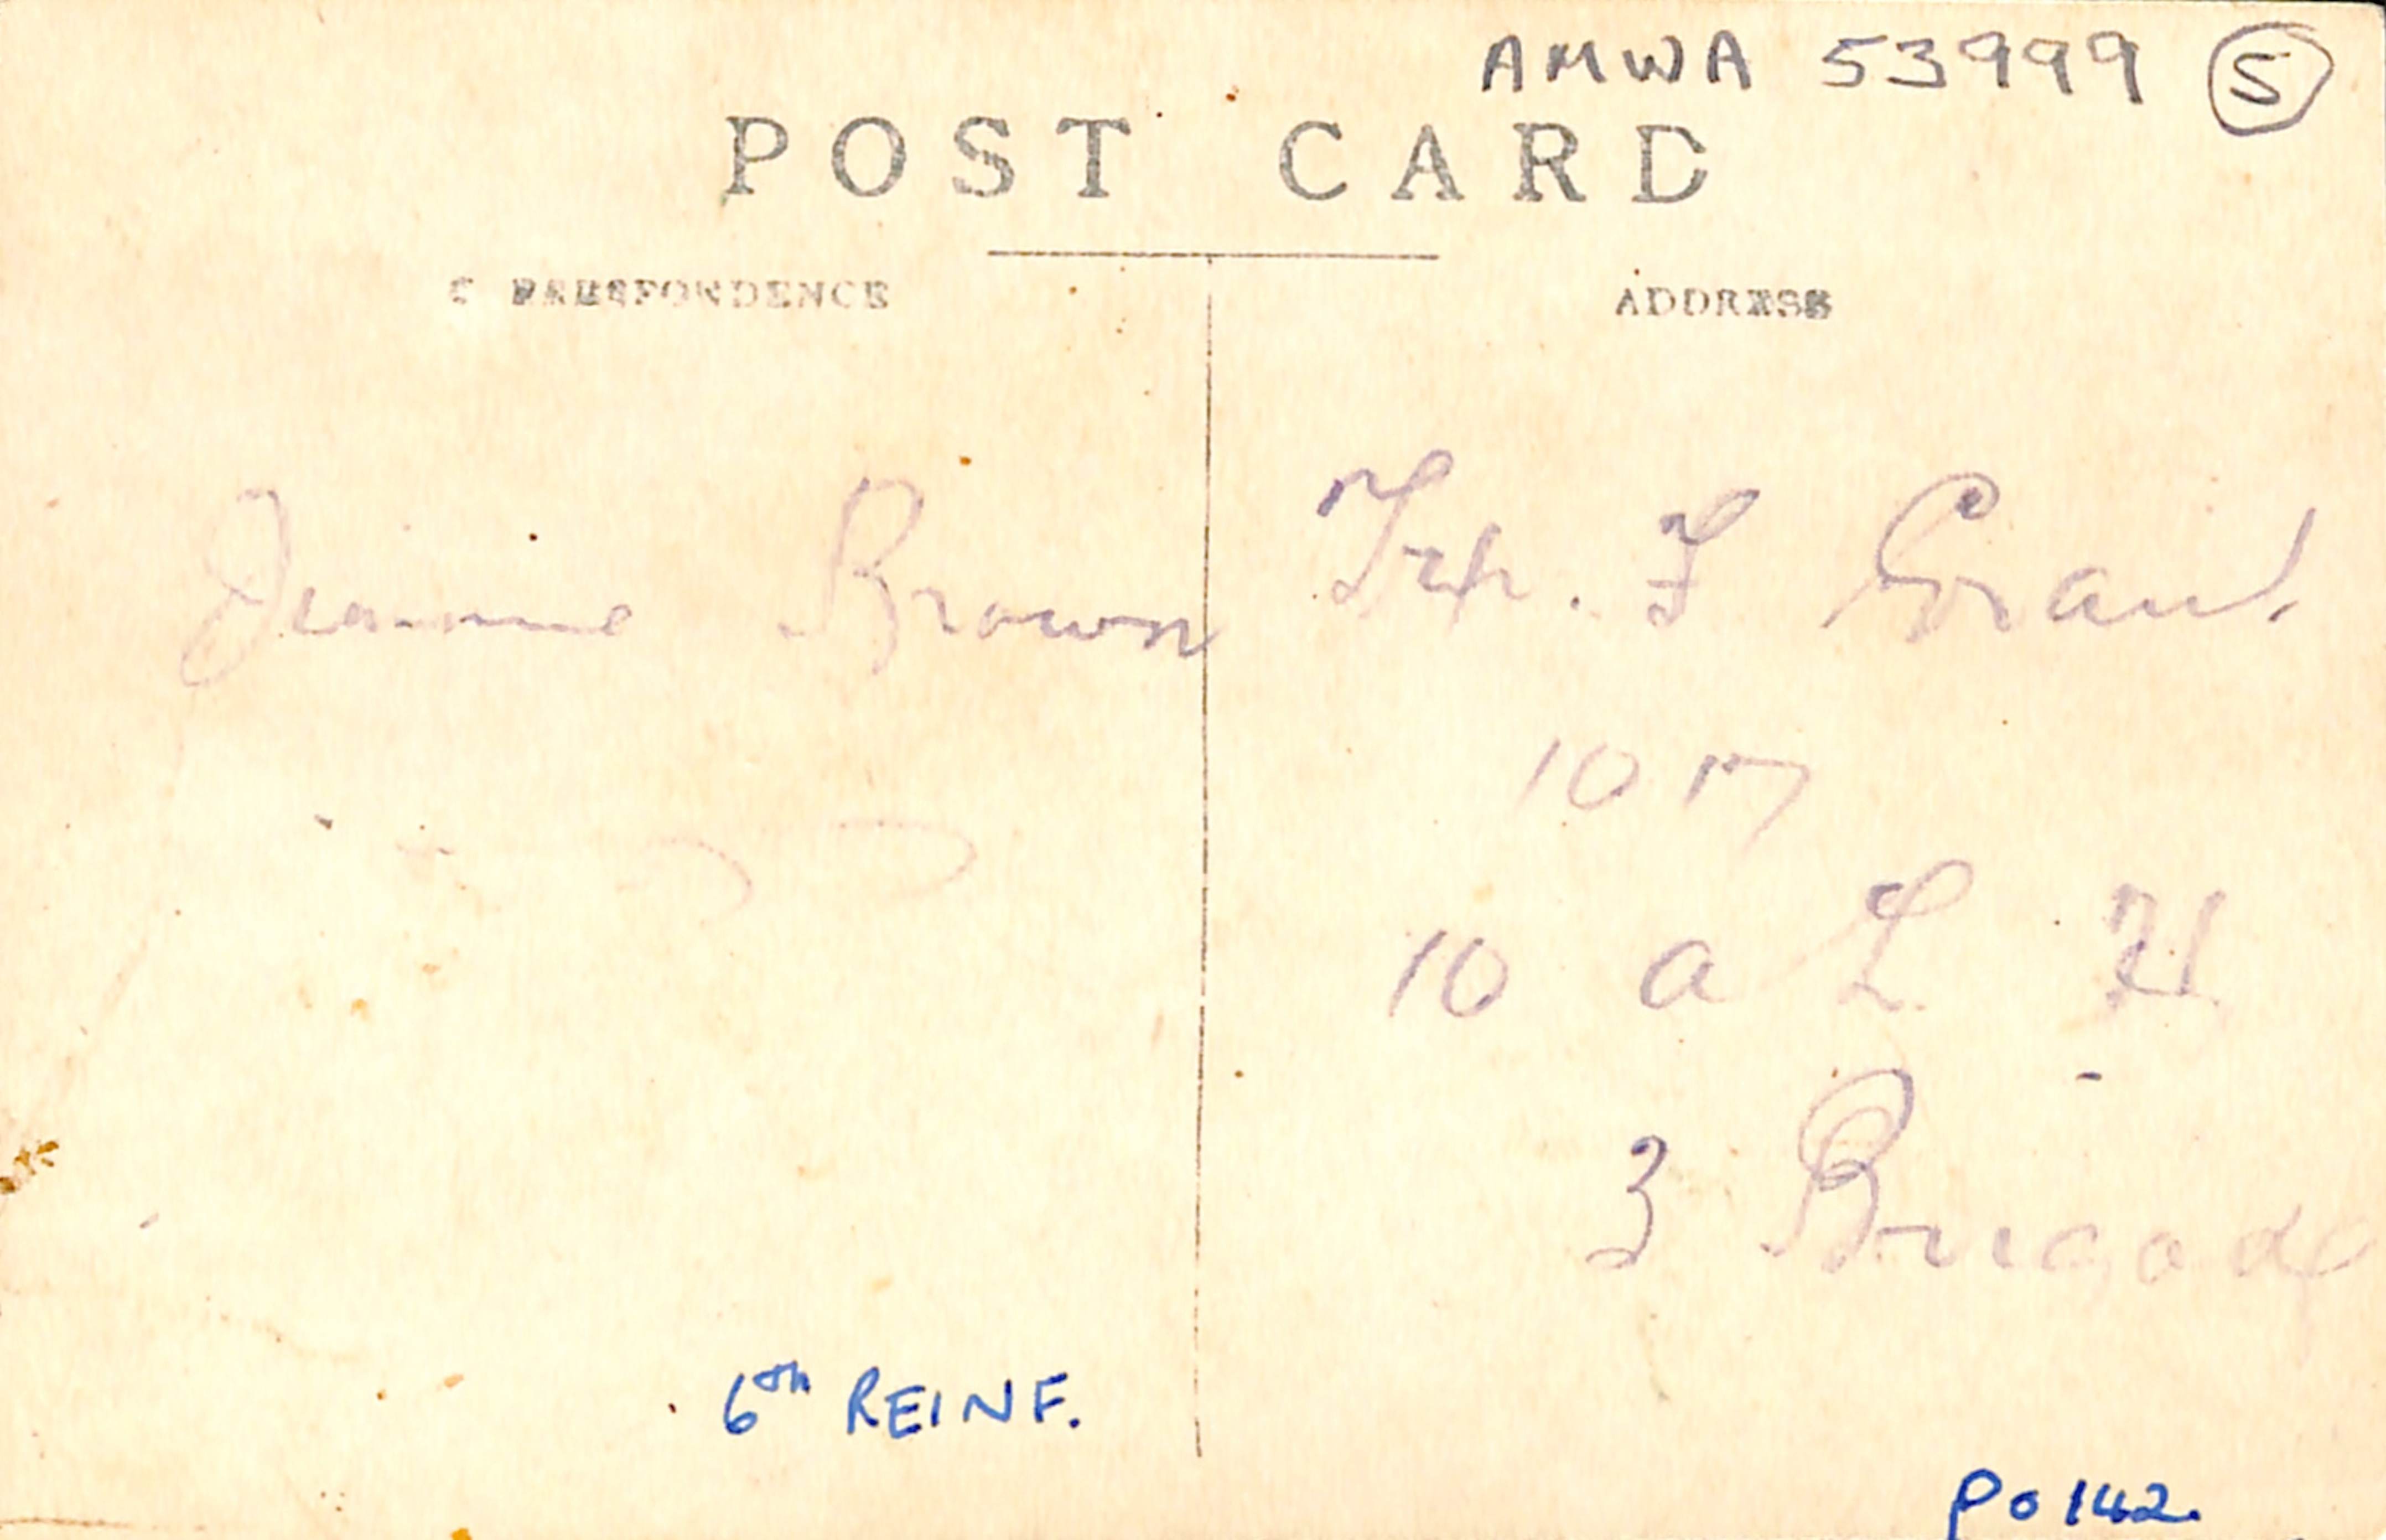 AMWA 53999 5
POST CARD
C RRESPONDENCE
ADDRESS
Jeannie Brown
Trp. F Grant
1017
10 a L H
3 Brigade
6th REINF.
Po 142